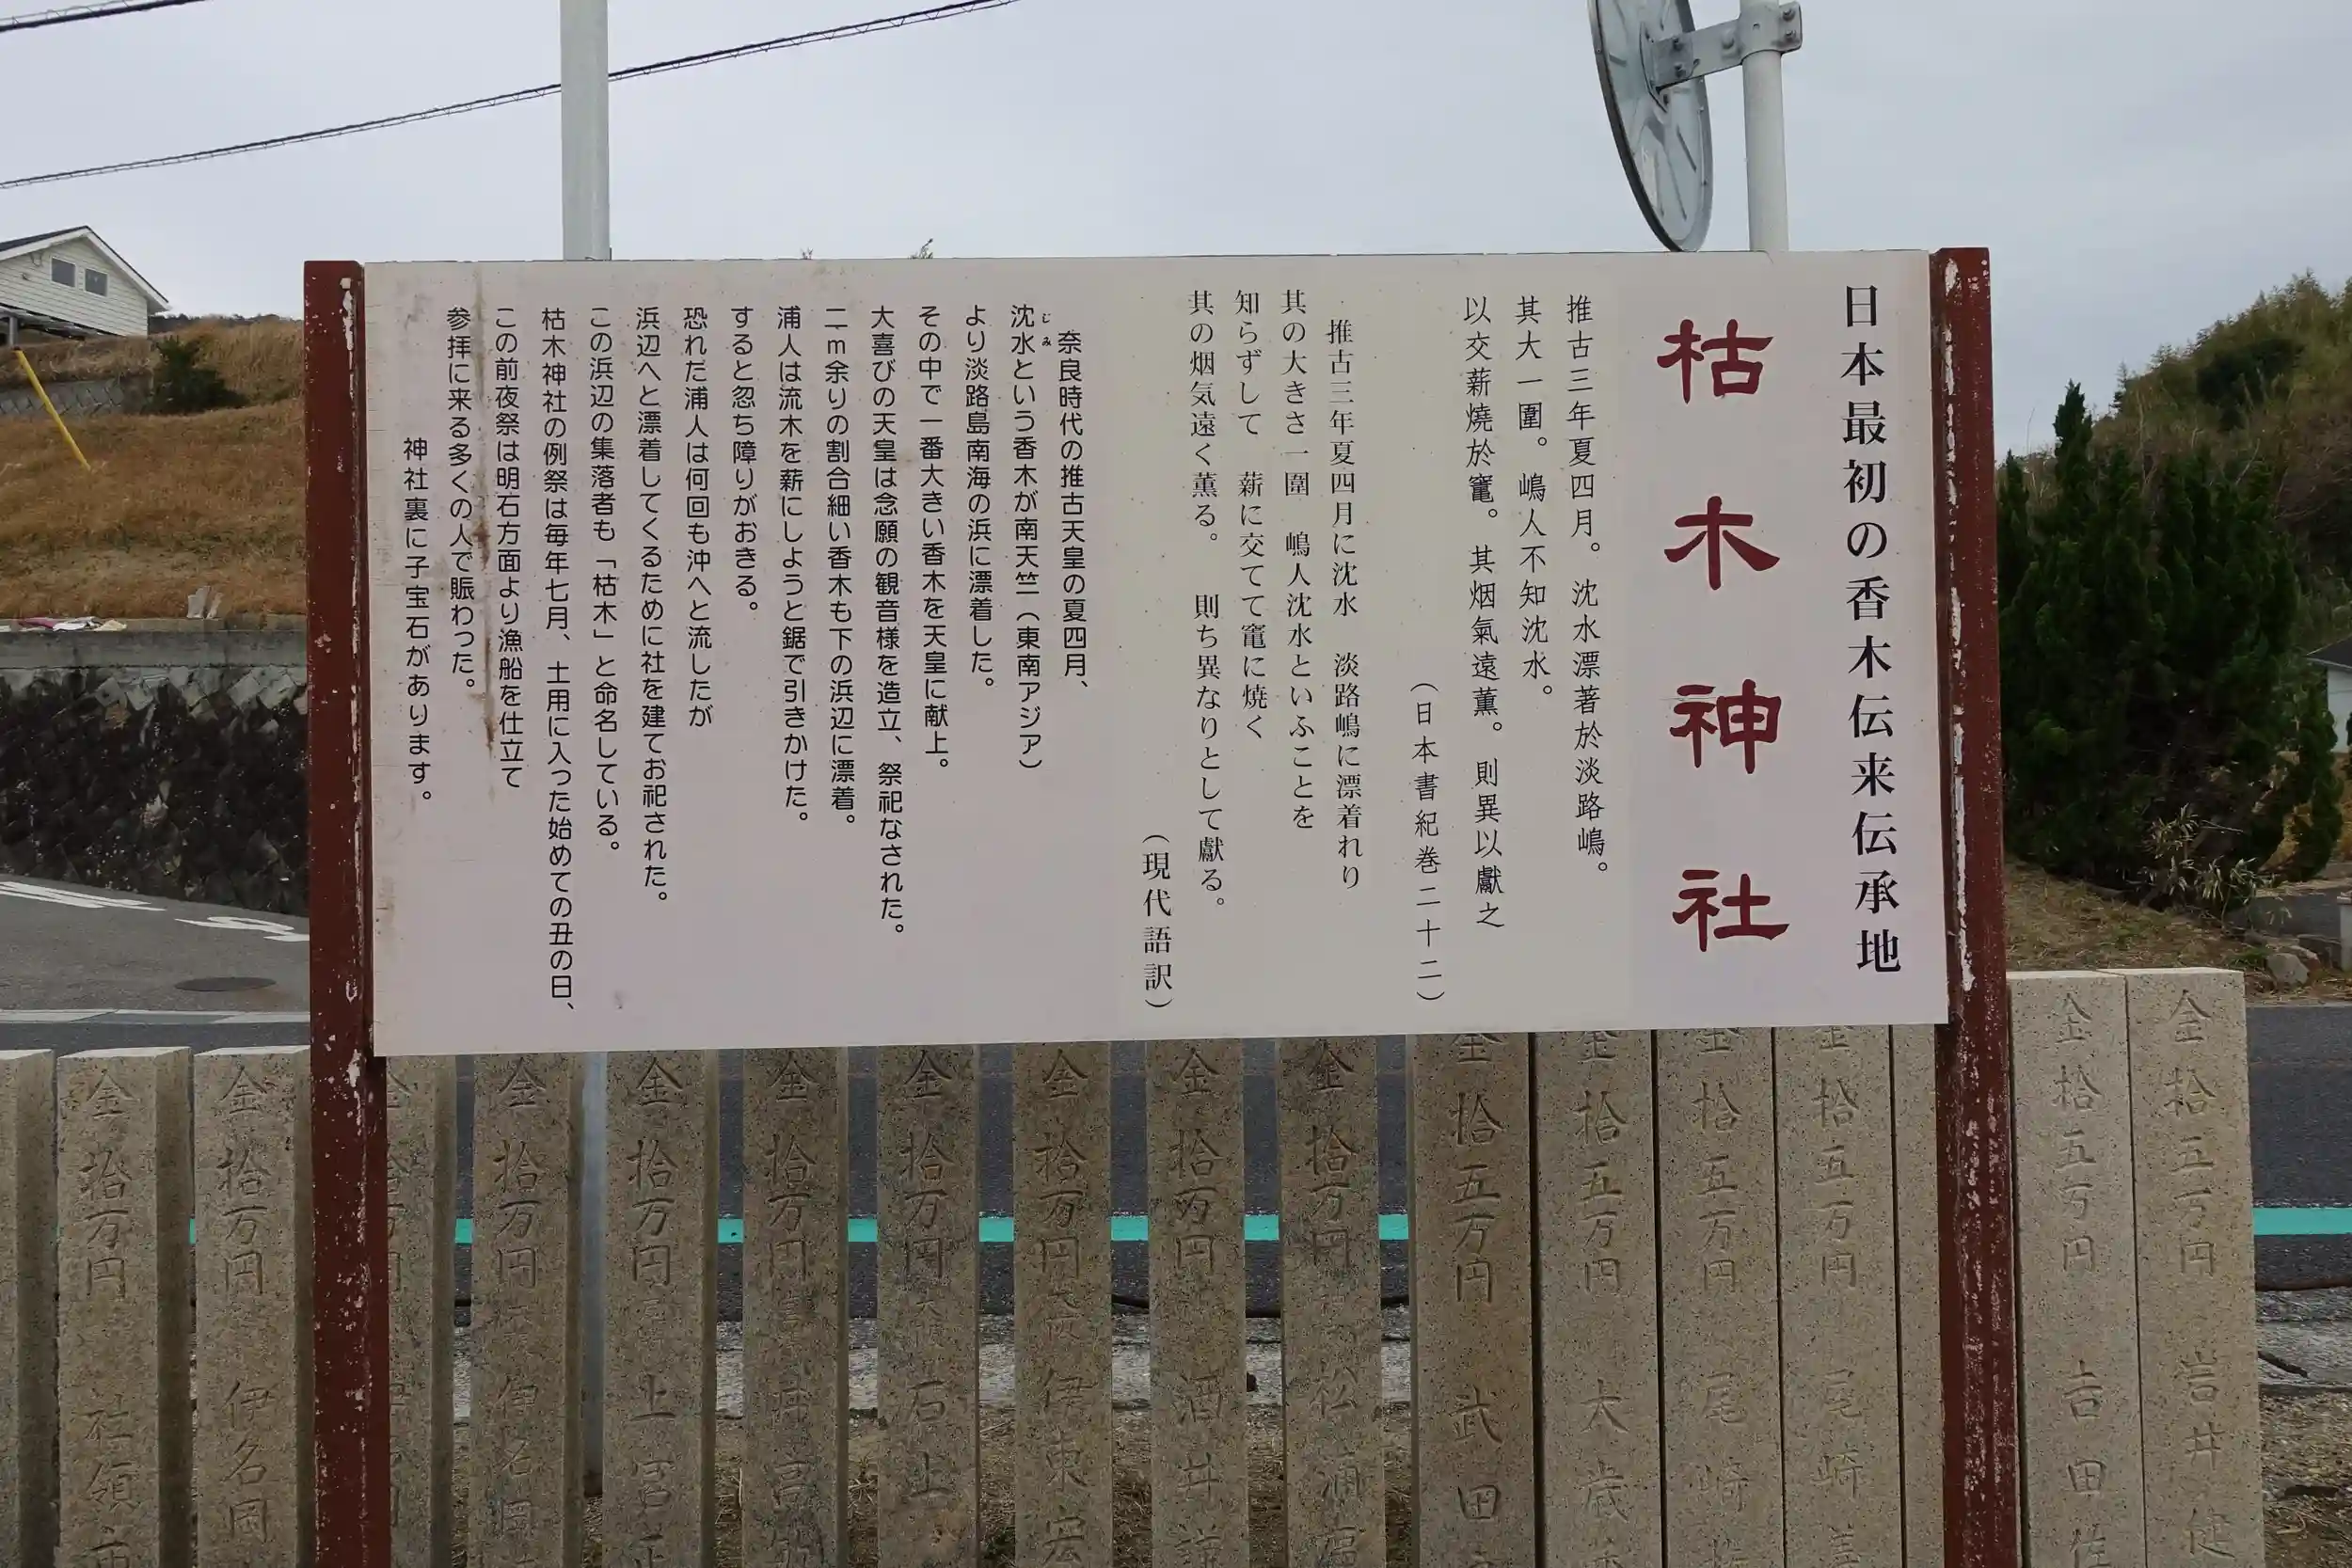 日本最初の香木伝来伝承地
枯木神社
推古三年夏四月。沈水漂著於淡路嶋。
其大一圍。嶋人不知沈水。
以交薪燒於竃。其烟氣遠薫。則異以獻之
（日本書紀巻二十二）
推古三年夏四月に沈水　淡路嶋に漂着れり
其の大きさ一圍　嶋人沈水といふことを
知らずして　薪に交てて竃に焼く
其の烟気遠く薫る。　則ち異なりとして獻る。
（現代語訳）
奈良時代の推古天皇の夏四月、
じみ
沈水という香木が南天竺（東南アジア）
より淡路島南海の浜に漂着した。
その中で一番大きい香木を天皇に献上。
大喜びの天皇は念願の観音様を造立、祭祀なされた。
二ｍ余りの割合細い香木も下の浜辺に漂着。
浦人は流木を薪にしようと鋸で引きかけた。
すると忽ち障りがおきる。
恐れた浦人は何回も沖へと流したが
浜辺へと漂着してくるために社を建てお祀された。
この浜辺の集落者も「枯木」と命名している。
枯木神社の例祭は毎年七月、土用に入った始めての丑の日、
この前夜祭は明石方面より漁船を仕立て
参拝に来る多くの人で賑わった。
神社裏に子宝石があります。
金拾五万円　岩井健
金拾五万円　吉田
金拾五万円　尾崎
金拾五万円　尾崎
金拾五万円　大歳
金拾五万円　武田
金拾万円　松浦
金拾万円　酒井謙
金拾万円　伊東宏
金拾万円　石上
金拾万円　高
金拾万円　上宮正
金拾万円　伊名岡
金拾万円
金拾万円　伊名岡
金拾万円　社領